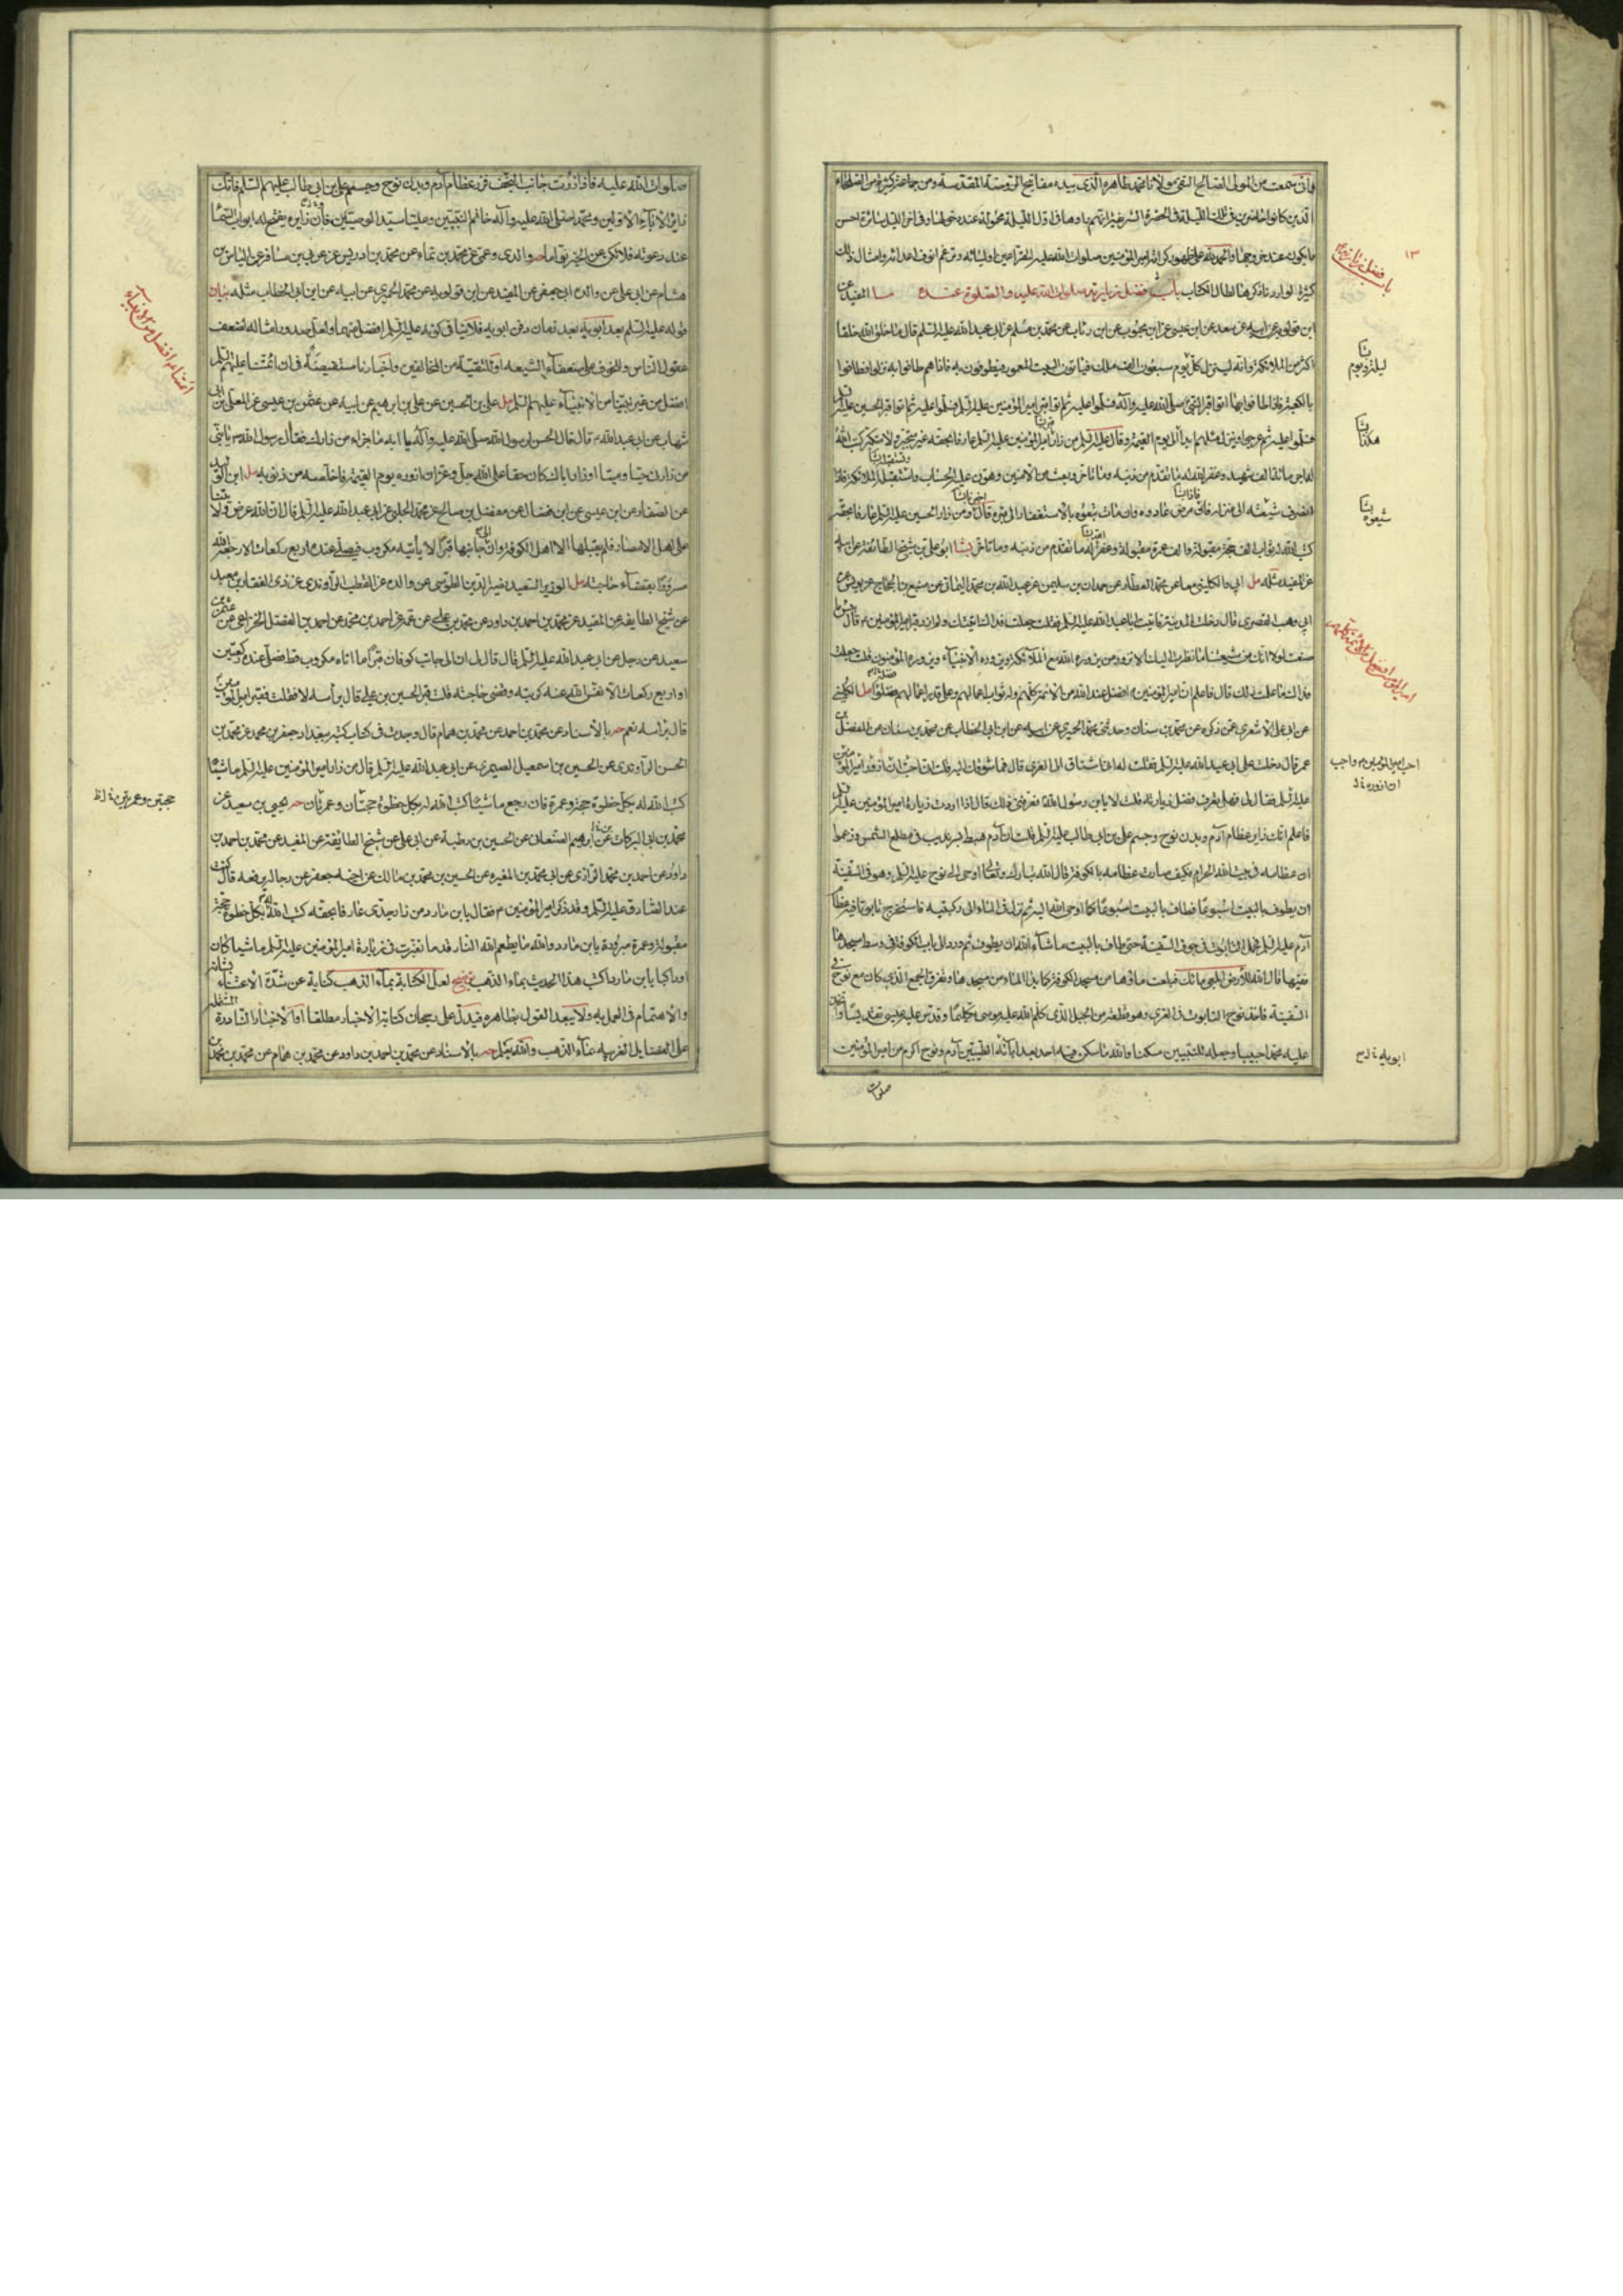 فانى سمعت من المولى الصالح التقى مولانا محمد طاهر الذى بيده مفاتيح الروضة المقدسة ومن جماعة كثيرة من الصلحاء
الذين كانوا حاضرين فى تلك الليلة فى الحضرة الشريفة
ما يكون عند خروجها والحمد لله على ظهور كرامة امير المؤمنين صلوات الله عليه وامثال ذلك
كثيرة لو اردنا ذكرها لطال الكتاب باب فضل زيارته صلوات الله عليه والصلوة عنده ما المفيد عن
ابن قولويه عن ابيه عن سعد عن ابن عيسى عن ابن محبوب عن ابن رئاب عن محمد بن مسلم عن ابى عبد الله عليه السلم قال ما خلق الله خلقا
اكثر من الملائكة وانه لينزل كل يوم سبعون الف ملك فيأتون البيت المعمور فيطوفون به فاذا هم طافوا به نزلوا فطافوا
بالكعبة فاذا طافوا بها اتوا قبر النبى صلى الله عليه وآله فسلموا عليه ثم اتوا قبر امير المؤمنين عليه السلم فسلموا عليه ثم اتوا قبر الحسين عليه السلم
فسلموا عليه ثم عرجوا وينزل مثلهم ابدا الى يوم القيمة وقال عليه السلم من زار امير المؤمنين عليه السلم عارفا بحقه غير متجبر ولا متكبر كتب الله
له اجر مائة الف شهيد وغفر الله له ما تقدم من ذنبه وما تأخر وبعث من الآمنين وهون عليه الحساب واستقبلته الملائكة فاذا
انصرف شيعته الى منزله فان مرض عادوه وان مات تبعوه بالاستغفار الى قبره قال ومن زار الحسين عليه السلم عارفا بحقه
كتب الله له ثواب الف حجة مقبولة والف عمرة مقبولة وغفر له ما تقدم من ذنبه وما تأخر بشا ابو على بن شيخ الطائفة عن ابيه
عن المفيد مثله مل ابى والكلينى معا عن محمد العطار عن حمدان بن سليمن عن عبد الله بن محمد اليمانى عن منيع بن الحجاج عن يونس عن
ابى وهب القصرى قال دخلت المدينة فاتيت ابا عبد الله عليه السلم فقلت جعلت فداك اتيتك ولم ازر قبر امير المؤمنين قال بئس ما
صنعت لولا انك من شيعتنا ما نظرت اليك الا تزور من يزوره الله مع الملائكة ويزوره الانبياء ويزوره المؤمنون قلت جعلت
فداك ما علمت ذلك قال فاعلم ان امير المؤمنين افضل عند الله من الائمة كلهم وله ثواب اعمالهم وعلى قدر اعمالهم فضلوا مل الكلينى
عن ابى على الاشعرى عمن ذكره عن محمد بن سنان وحدثنى محمد الحميرى عن ابيه عن ابن ابى الخطاب عن محمد بن سنان عن المفضل بن
عمر قال دخلت على ابى عبد الله عليه السلم فقلت له انى اشتاق الى الغرى قال فما شوقك اليه فقلت انى احب ان ازور امير المؤمنين
عليه السلم فقال لى فهل تعرف فضل زيارته قلت لا يابن رسول الله فعرفنى ذلك قال اذا اردت زيارة امير المؤمنين عليه السلم
فاعلم انك زاير عظام آدم وبدن نوح وجسم على بن ابى طالب عليه السلم فقلت ان آدم هبط بسرنديب فى مطلع الشمس وزعموا
ان عظامه فى بيت الله الحرام فكيف صارت عظامه بالكوفة قال ان الله تبارك وتعالى اوحى الى نوح عليه السلم وهو فى السفينة
ان يطوف بالبيت اسبوعا فطاف بالبيت اسبوعا كما اوحى الله اليه ثم نزل فى الماء الى ركبتيه فاستخرج تابوتا فيه عظام
آدم عليه السلم فحمل التابوت فى جوف السفينة حتى طاف بالبيت ما شاء الله ان يطوف ثم ورد الى باب الكوفة فى وسط مسجدها
ففيها قال الله للارض ابلعى مائك فبلعت ماؤها من مسجد الكوفة كما بدا الماء من مسجدها وتفرق الجمع الذى كان مع نوح فى
السفينة فاخذ نوح التابوت فدفنه فى الغرى وهو قطعة من الجبل الذى كلم الله عليه موسى تكليما وقدس عليه عيسى تقديسا واتخذ
عليه محمدا حبيبا وجعله للنبيين مسكنا والله ما سكن فيه احد بعد آبائه الطيبين آدم ونوح اكرم من امير المؤمنين
صلوات
١٣
باب فضل زيارته
ليلة ويوم
هكذا
شيعوه
امير المؤمنين افضل من الائمة كلهم
احب امير المؤمنين واحب
ان ازوره
ابويه
صلوات الله عليه فاذا زرت جانب النجف فزر عظام آدم وبدن نوح وجسم على بن ابى طالب عليهم السلم فانك
زاير الآباء الاولين ومحمد صلى الله عليه وآله خاتم النبيين وعليا سيد الوصيين فان زايره يفتح له ابواب السماء
عند دعوته فلا تكن عن الخير نواما حه والدى وعمى عن محمد بن نما عن محمد بن ادريس عن عربى بن مسافر عن الياس بن
هشام عن ابى على عن والده ابى جعفر عن المفيد عن ابن قولويه عن محمد الحميرى عن ابيه عن ابن ابى الخطاب مثله بيان
قوله عليه السلم بعد ابويه بعد زمان دفن ابويه فلا ينافى كونه عليه السلم افضل منهما ولعل صدور امثاله لضعف
عقول الناس وللخوف على ضعفاء الشيعه او للتقية من المخالفين واخبارنا مستفيضة فى ان ائمتنا عليهم السلم
افضل من غير نبينا من الانبياء عليهم السلم مل على بن الحسين عن على بن ابرهيم عن ابيه عن عثمن بن عيسى عن المعلى بن ابى
شهاب عن ابى عبد الله قال قال الحسن لرسول الله صلى الله عليه وآله يا ابه ما جزاء من زارك فقال رسول الله يا بنى
من زارنى حيا وميتا او زار اباك كان حقا على الله جل وعز ان ازوره يوم القيمة فاخلصه من ذنوبه مل ابن الوليد
عن الصفار عن ابن عيسى عن ابن فضال عن مفضل بن صالح عن محمد الحلبى عن ابى عبد الله عليه السلم قال ان الله عرض ولايتنا
على اهل الامصار فلم يقبلها الا اهل الكوفة وان الى جانبها قبرا لا يأتيه مكروب فيصلى عنده اربع ركعات الا رجعه الله
مسرورا بقضاء حاجته حه الوزير السعيد نصير الدين الطوسى عن والده عن القطب الراوندى عن ذى الفقار بن معبد
عن شيخ الطايفه عن المفيد عن محمد بن احمد بن داود عن محمد بن على عن عمه عن احمد بن محمد عن احمد بن الفضل الخزاعى عن عثمن بن
سعيد عن رجل عن ابى عبد الله عليه السلم قال قال لى ان الى جانب كوفان قبرا ما اتاه مكروب قط فصلى عنده ركعتين
او اربع ركعات الا نفس الله عنه كربته وقضى حاجته قلت قبر الحسين بن على قال برأسه لا فقلت فقبر امير المؤمنين
قال برأسه نعم حه بالاسناد عن محمد بن احمد عن محمد بن همام قال وجدت فى كتاب كتبه ببغداد جعفر بن محمد عن محمد بن
الحسن الراوندى عن الحسين بن اسمعيل الصيمرى عن ابى عبد الله عليه السلم قال من زار امير المؤمنين عليه السلم ماشيا
كتب الله له بكل خطوة حجة وعمرة فان رجع ماشيا كتب الله له بكل خطوة حجتان وعمرتان حه يحيى بن سعيد عن
محمد بن ابى البركات عن ابرهيم الصنعانى عن الحسين بن رطبة عن ابى على عن شيخ الطايفة عن المفيد عن محمد بن احمد بن
داود عن احمد بن محمد الرازى عن ابى محمد بن المغيره عن الحسين بن محمد بن مالك عن اخيه جعفر عن رجاله يرفعه قال كنت
عند الصادق عليه السلم وقد ذكر امير المؤمنين فقال يابن مارد من زار جدى عارفا بحقه كتب الله له بكل خطوة حجة
مقبولة وعمرة مبرورة يابن مارد والله ما يطعم الله النار قدما تغبرت فى زيارة امير المؤمنين عليه السلم ماشيا كان
او راكبا يابن مارد اكتب هذا الحديث بماء الذهب توضيح لعل الكتابة بماء الذهب كناية عن شدة الاعتناء بشأنه
والاهتمام فى العمل به ولا يبعد القول بظاهره فيدل على رجحان كتابة الاخبار مطلقا او الاخبار النادرة المشتملة
على الفضايل الغريبه بماء الذهب والله يعلم حه بالاسناد عن محمد بن احمد بن داود عن محمد بن همام عن محمد بن محمد بن
ائمتنا افضل من الانبياء
حجتين وعمرتين